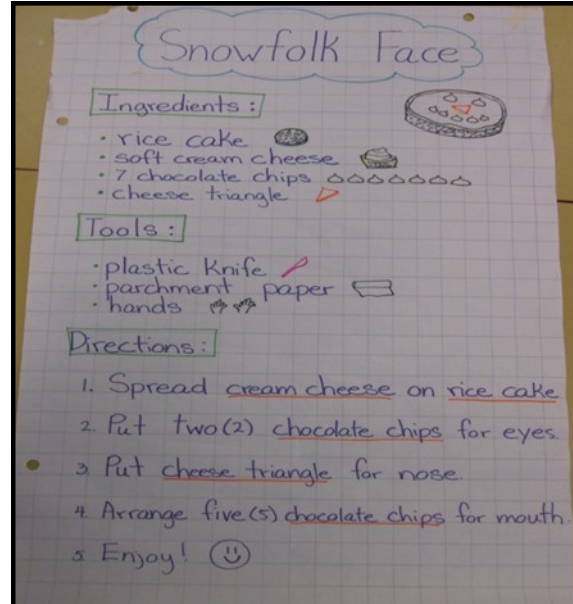 Snowfolk Face
Ingredients:
• rice cake
• soft cream cheese
• 7 chocolate chips
• cheese triangle
Tools:
• plastic knife
• parchment paper
• hands
Directions:
1. Spread cream cheese on rice cake
2. Put two (2) chocolate chips for eyes.
3. Put cheese triangle for nose.
4. Arrange five (5) chocolate chips for mouth.
5. Enjoy!